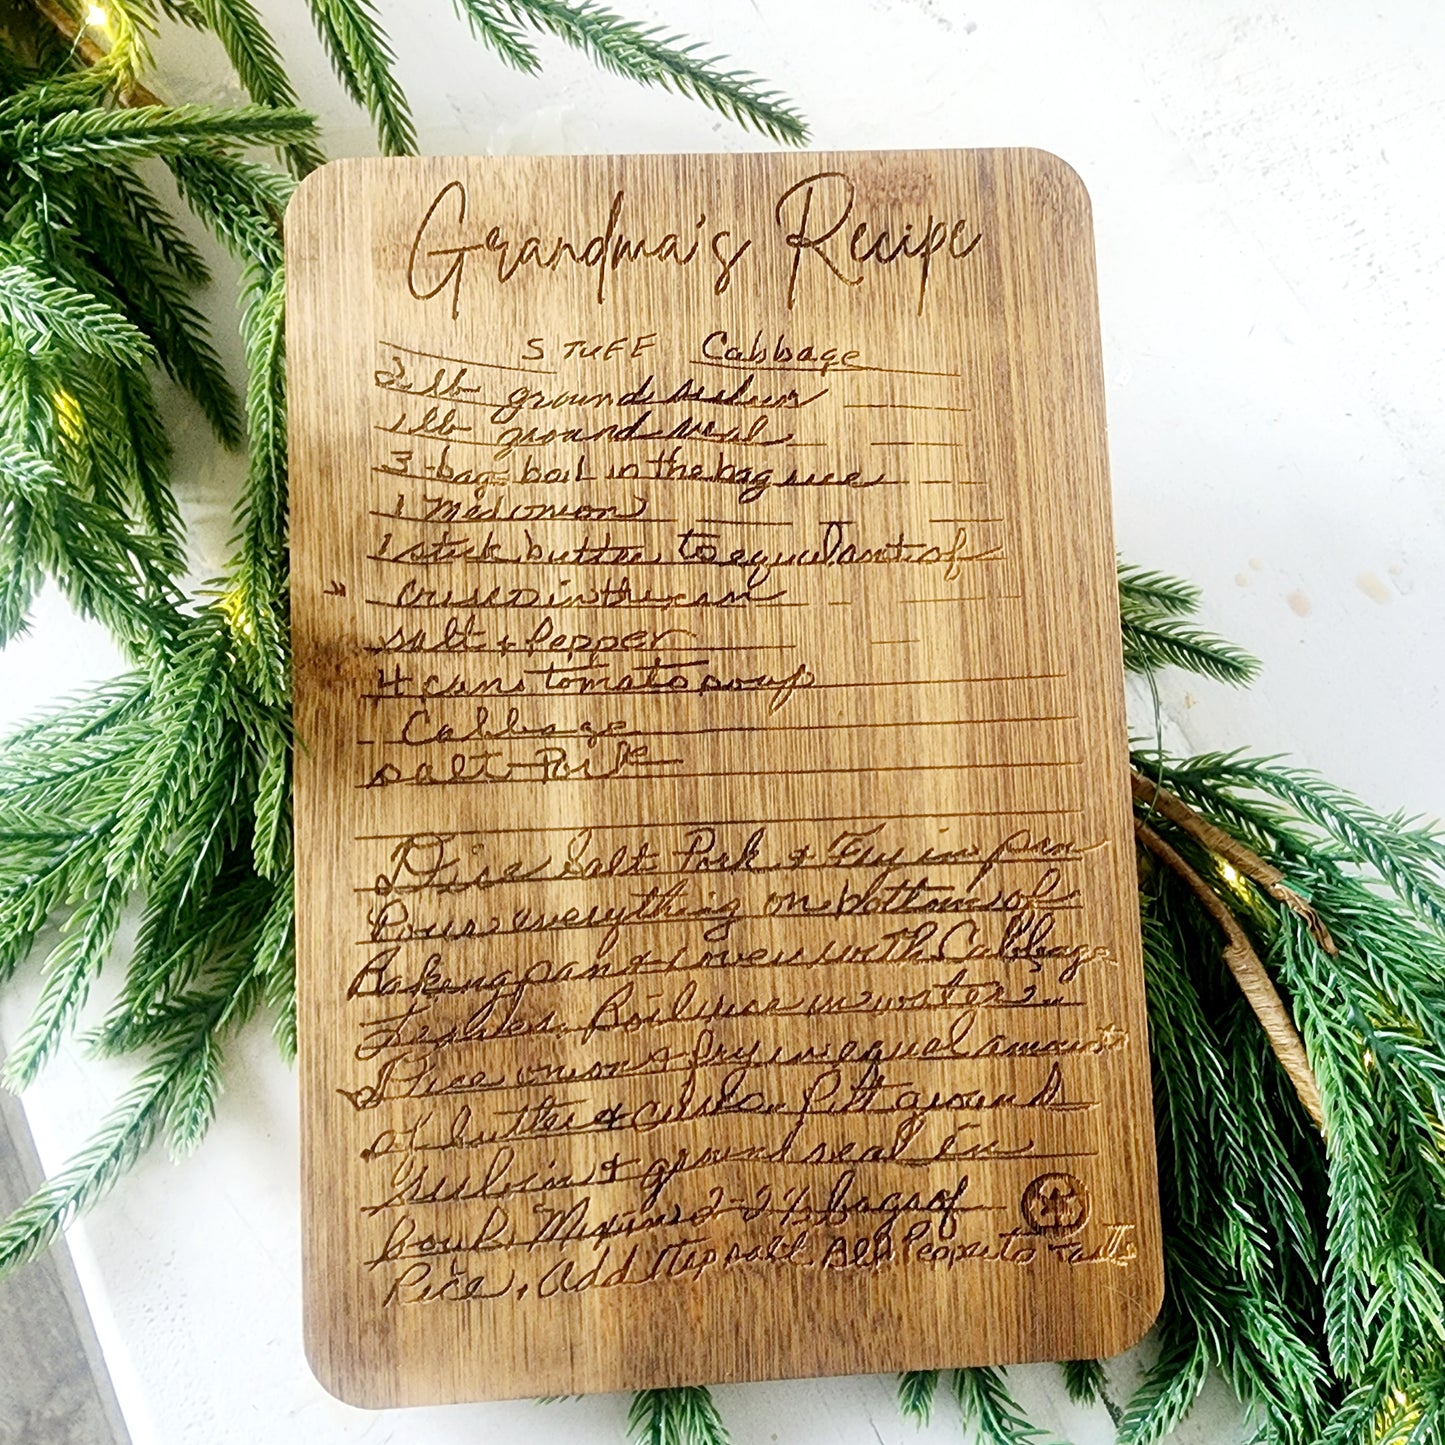 Grandma's Recipe
STUFF Cabbage
2 lb ground sirloin
1 lb ground veal
3-bag boil in the bag rice
1 Med onion
1 stick butter, to equal amt of
crisco in the can
salt + Pepper
4 cans tomato soup
Cabbage
salt Pork
Dice Salt Pork + Fry in pan
Pour everything on bottom of
Baking pan + cover with Cabbage
Leaves. Boil rice in water.
Dice onion + fry in equal amount
of butter + crisko. Put ground
Sirloin + ground veal in
bowl. Mix in 2-2½ bags of
Rice, Add 1 tsp salt Blk Pepper to Taste